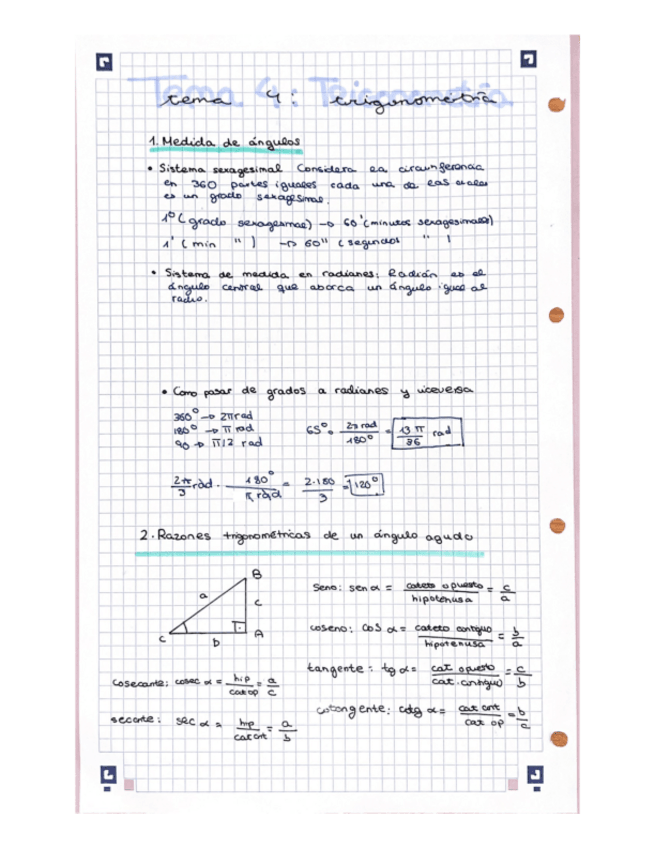 Tema 4: Trigonometría
tema 4: trigonometría
1. Medida de ángulos
• Sistema sexagesimal Considera la circunferencia
en 360 partes iguales cada una de las cuales
es un grado sexagesimal.
1º (grado sexagesimal) → 60' (minutos sexagesimales)
1' (min " ) → 60'' (segundos " )
• Sistema de medida en radianes: Radián es el
ángulo central que abarca un ángulo igual al
radio.
• Como pasar de grados a radianes y viceversa
360º → 2π rad
180º → π rad
90 → π/2 rad
65º · 2π rad / 180º = 13 π / 36 rad
2π/3 rad · 180º / π rad = 2·180 / 3 = 120º
2. Razones trigonométricas de un ángulo agudo
B
a
c
C
b
A
seno: sen α = cateto opuesto / hipotenusa = c / a
coseno: cos α = cateto contiguo / hipotenusa = b / a
tangente: tg α = cat opuesto / cat. contiguo = c / b
cosecante: cosec α = hip / cat op = a / c
cotangente: cotg α = cat cnt / cat op = b / c
secante: sec α = hip / cat cnt = a / b